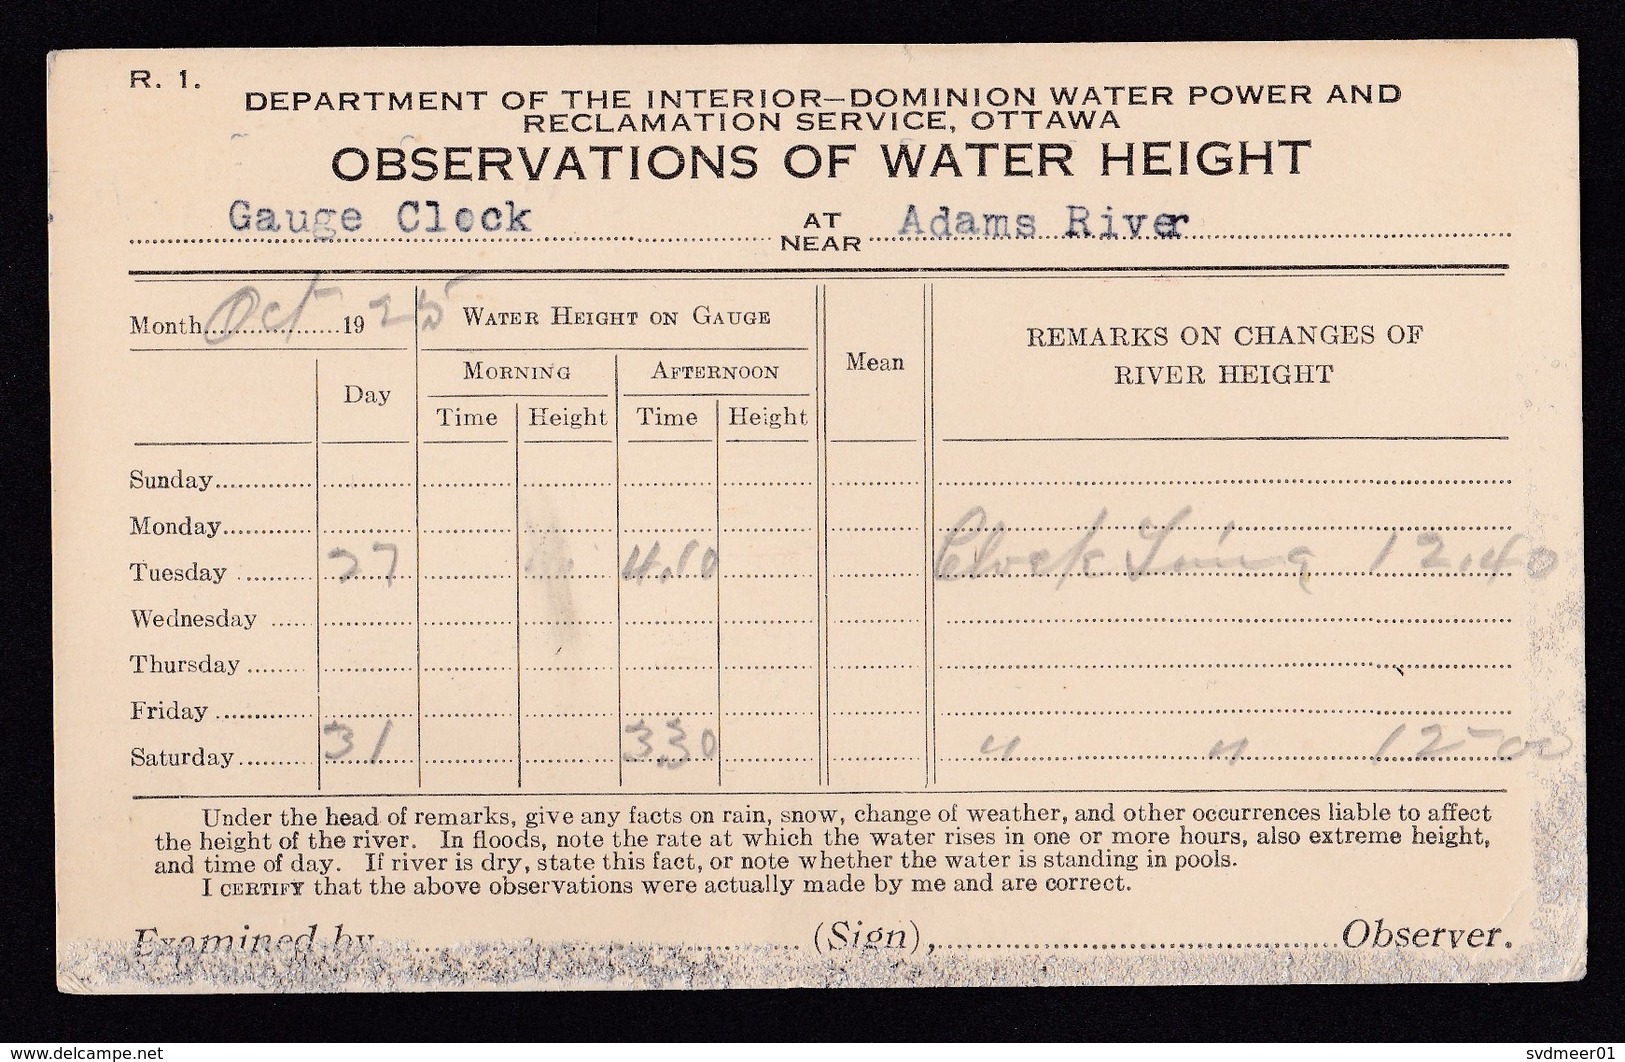 R. 1.
DEPARTMENT OF THE INTERIOR—DOMINION WATER POWER AND
RECLAMATION SERVICE, OTTAWA
OBSERVATIONS OF WATER HEIGHT
Gauge Clock AT NEAR Adams River
Month Oct 1925
WATER HEIGHT ON GAUGE
Mean
REMARKS ON CHANGES OF
RIVER HEIGHT
Day
MORNING
AFTERNOON
Time Height Time Height
Sunday
Monday
Tuesday 27 4.10 Clock 12.40
Wednesday
Thursday
Friday
Saturday 31 3.30 " " 12-00
Under the head of remarks, give any facts on rain, snow, change of weather, and other occurrences liable to affect
the height of the river. In floods, note the rate at which the water rises in one or more hours, also extreme height,
and time of day. If river is dry, state this fact, or note whether the water is standing in pools.
I CERTIFY that the above observations were actually made by me and are correct.
Examined by (Sign), Observer.
www.delcampe.net
svdmeer01